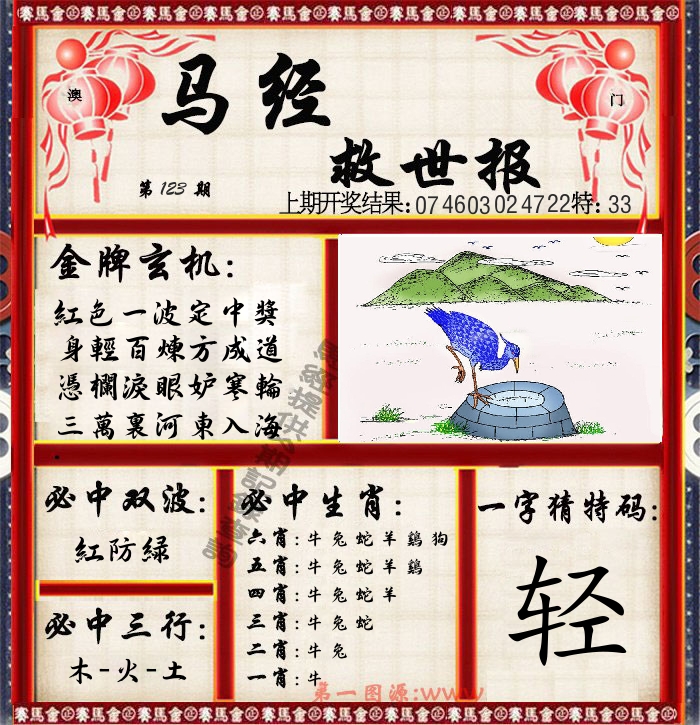 賽馬會正賽馬會正賽馬會正賽馬會正賽馬會正賽馬會正賽馬會
澳
门
马经
救世报
第 123 期
上期开奖结果: 07 46 03 02 47 22 特: 33
金牌玄机:
紅色一波定中獎
身輕百煉方成道
憑欄淚眼妒寒輪
三萬裏河東入海
必中双波:
紅防綠
必中三行:
木-火-土
必中生肖:
六肖: 牛兔蛇羊鷄狗
五肖: 牛兔蛇羊鷄
四肖: 牛兔蛇羊
三肖: 牛兔蛇
二肖: 牛兔
一肖: 牛
一字猜特码:
轻
第一图源:www